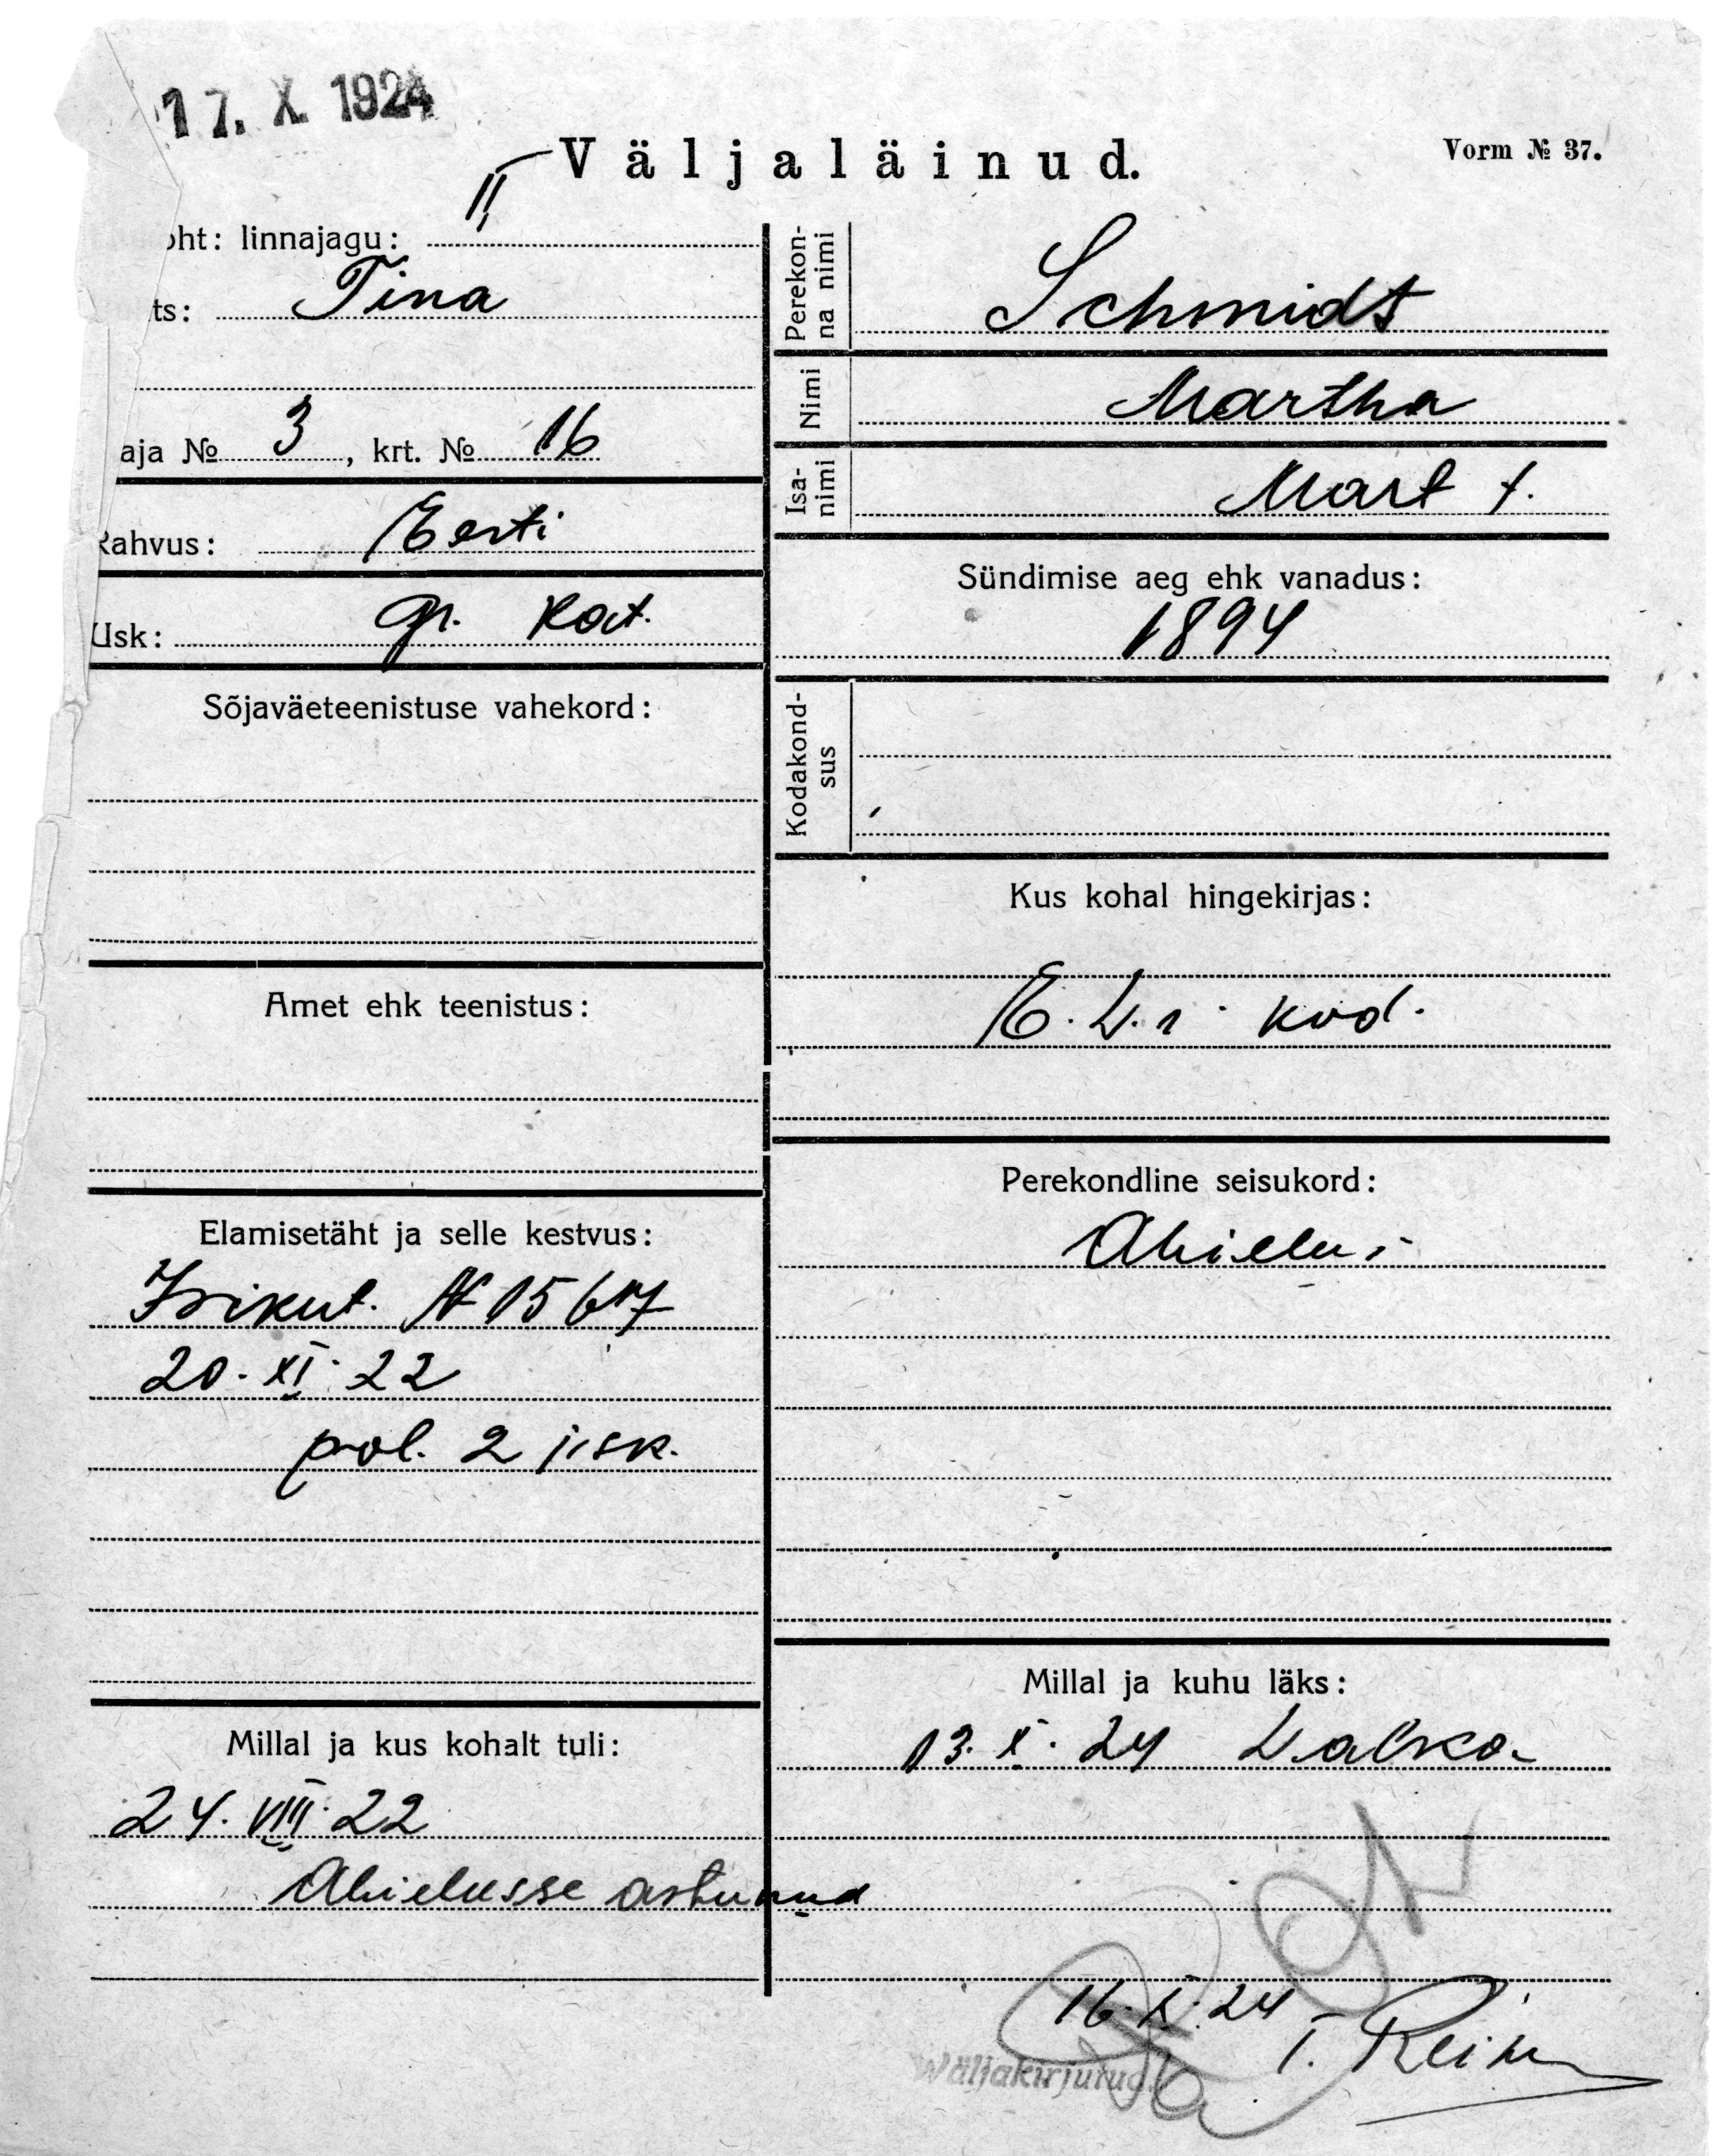 17. X. 1924
Väljaläinud.
Vorm № 37.
oht: linnajagu: II
ts: Tina
aja № 3, krt. № 16
Rahvus: Eesti
Usk: gr. kat.
Sõjaväeteenistuse vahekord:
Amet ehk teenistus:
Elamisetäht ja selle kestvus:
Isikut. №
20. XI. 22
pol. 2 jisk.
Millal ja kus kohalt tuli:
24. VIII. 22
Abielusse astunud
Perekonna nimi Schmidt
Nimi Martha
Isanimi Mart t.
Sündimise aeg ehk vanadus:
1894
Kodakondsus
Kus kohal hingekirjas:
E. W. r. kod.
Perekondline seisukord:
Abielus
Millal ja kuhu läks:
13. X. 24 Walka
16. X. 24
Wäljakirjutud